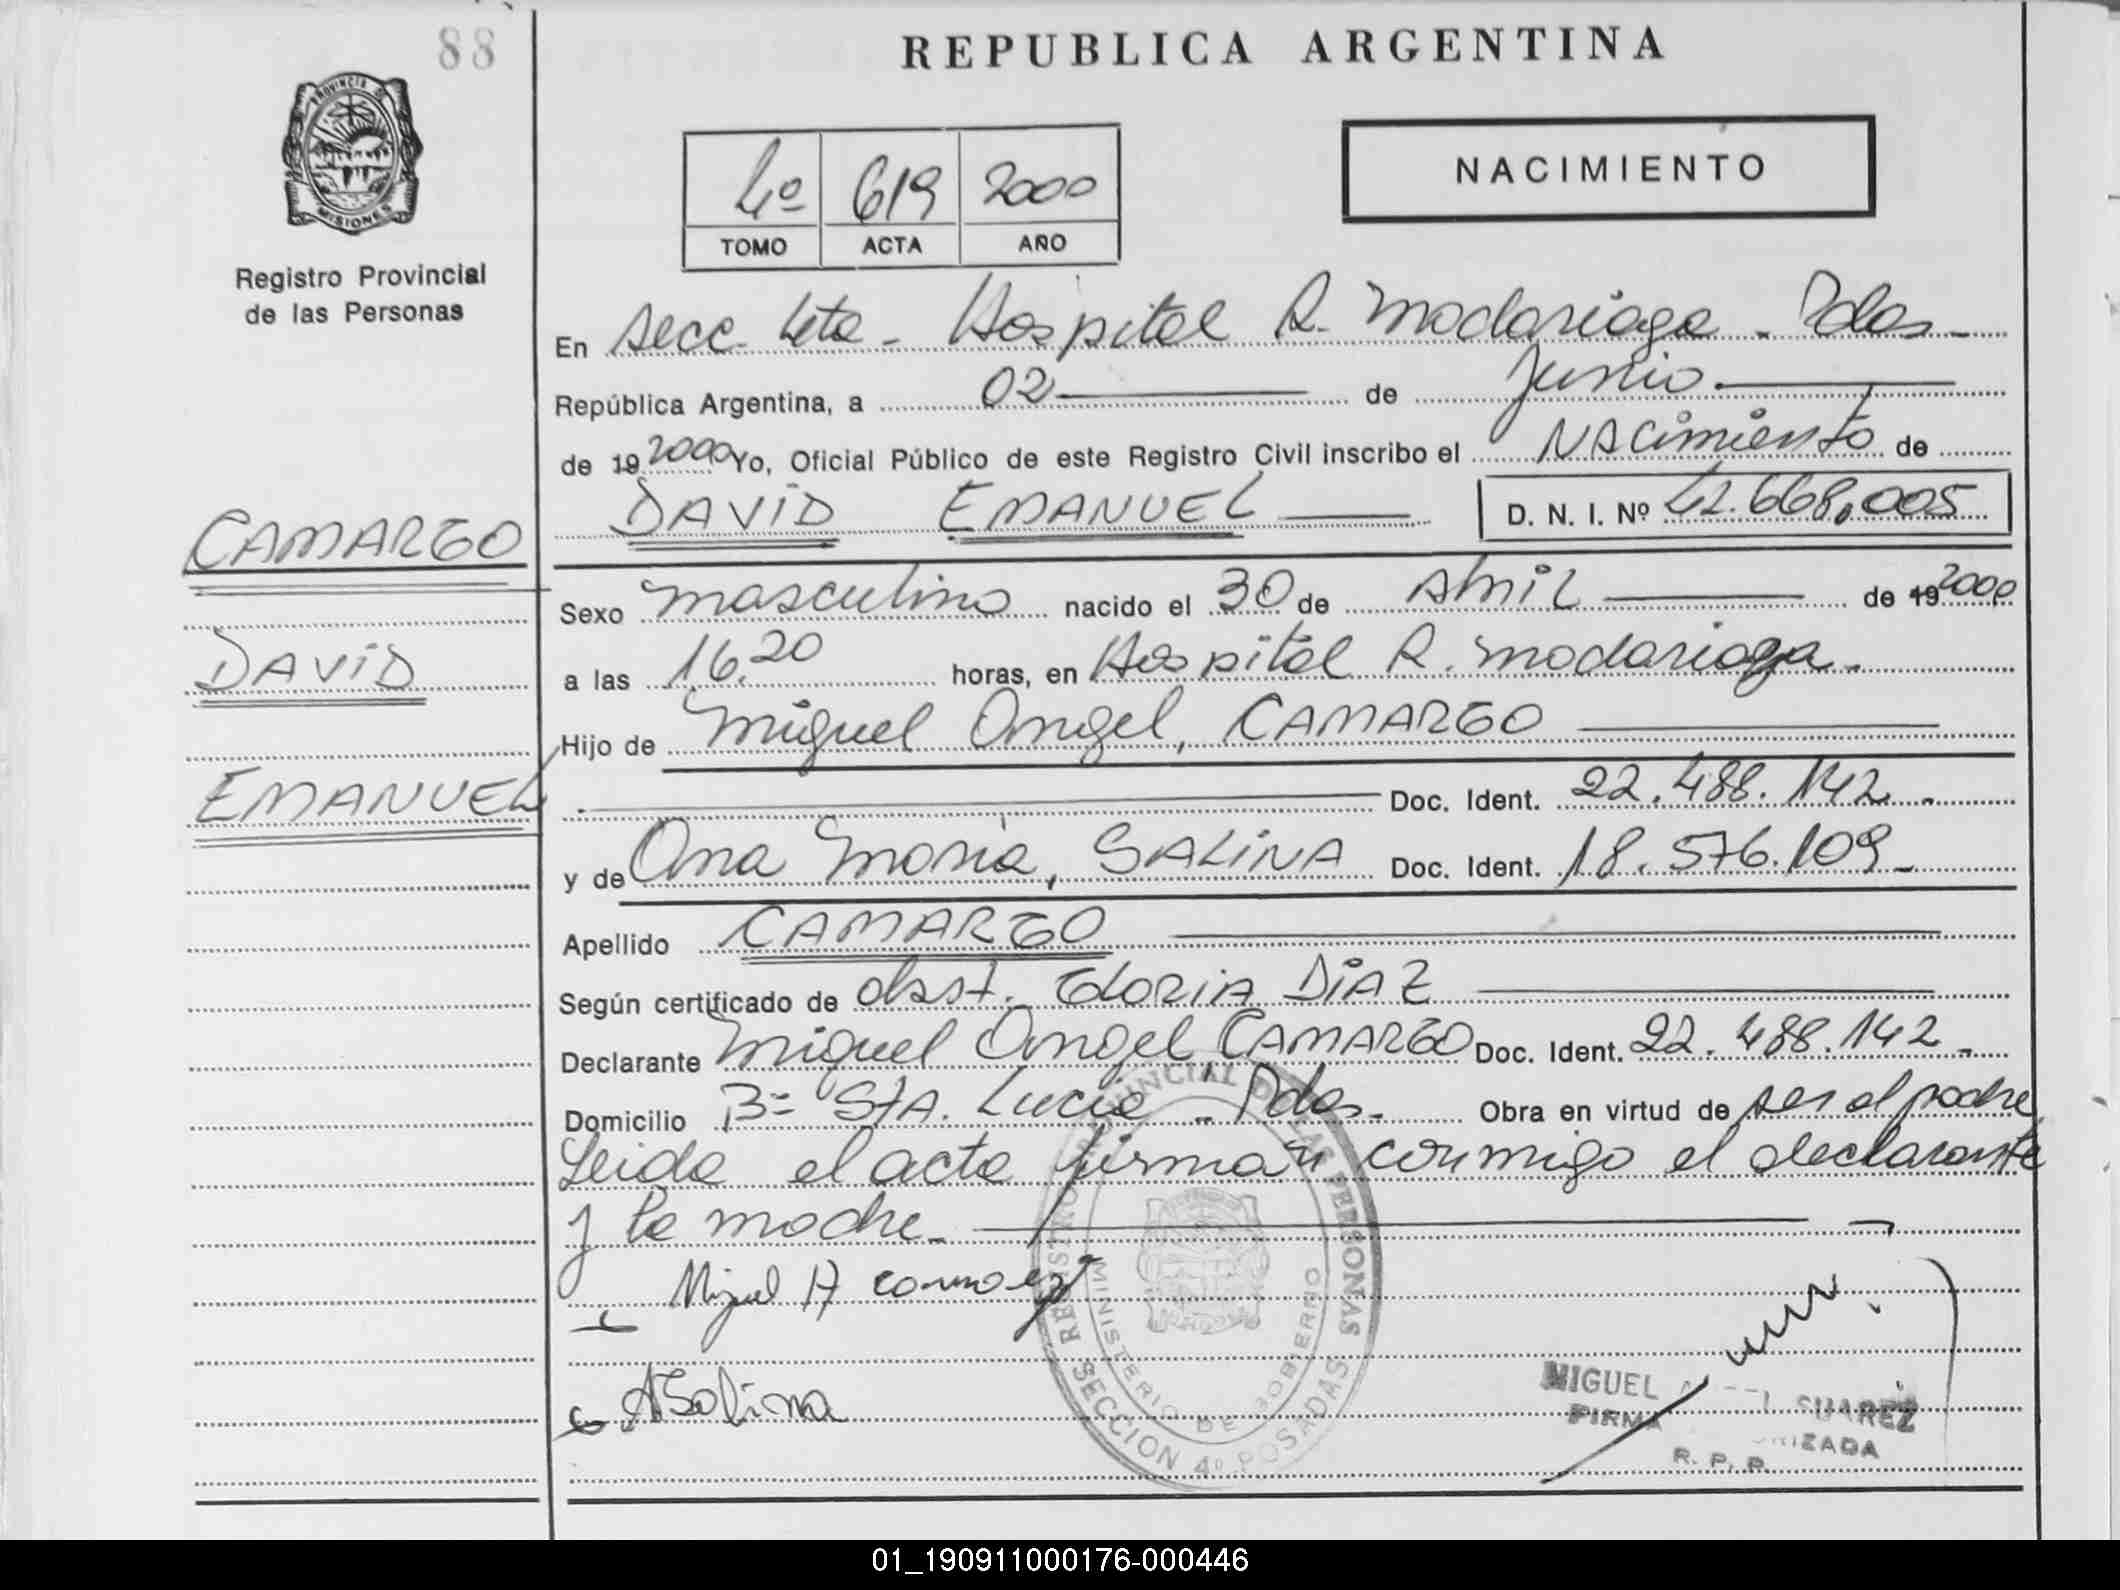 88
REPUBLICA ARGENTINA
PROVINCIA DE
MISIONES
Registro Provincial
de las Personas
NACIMIENTO
4º 619 2000
TOMO ACTA AÑO
En secc. 4ta - Hospital R. Madariaga - Pdas -
República Argentina, a 02 de Junio.
de 19 2000 Yo, Oficial Público de este Registro Civil inscribo el NACimiento de
DAViD EMANUEL D. N. I. Nº 42.668.005
CAMARGO
DAViD
EMANUEL
Sexo masculino nacido el 30 de AbriL de 19 2000
a las 16,20 horas, en Hospital R. Madariaga.
Hijo de Miguel Angel, CAMARGO
Doc. Ident. 22.488.142 -
y de Ana Maria, SALiNA Doc. Ident. 18.576.109 -
Apellido CAMARGO
Según certificado de obst. GLORiA DiAZ
Declarante Miguel Angel CAMARGO Doc. Ident. 22.488.142 -
Domicilio Bº STA. Lucia - Pdas - Obra en virtud de ser el padre,
Leida el acta firman conmigo el declarante
y la madre -
Miguel A
ASalina
REGISTRO PROVINCIAL DE LAS PERSONAS
MINISTERIO DE GOBIERNO
SECCION 4º POSADAS
MIGUEL SUAREZ
FIRMA
R. P. P.
01_190911000176-000446